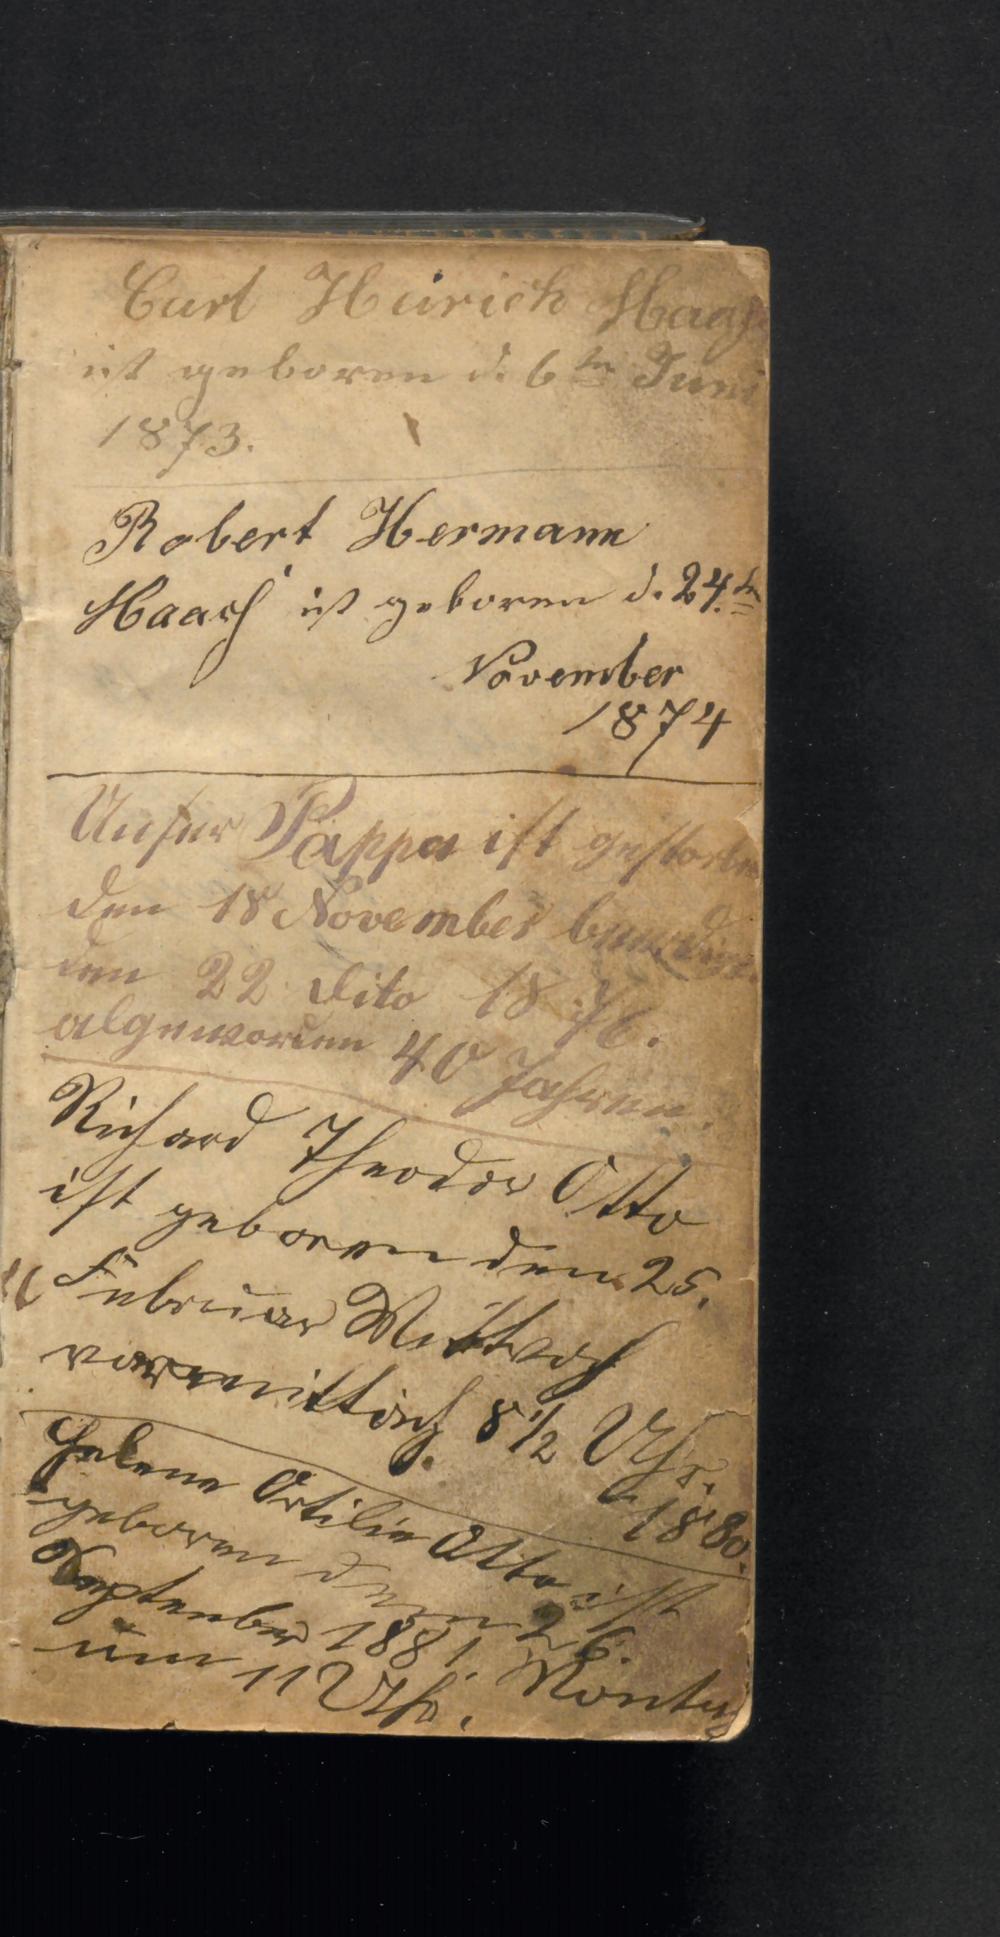 Carl Heinrich Haasch
ist geboren d. 6ten Juni
1873.
Robert Hermann
Haasch ist geboren d. 24.ten
November
1874
Unser Pappa ist gestorben
den 18 November
den 22 dito 1876.
algeworden 40 Jahren.
Richard Theodor Otto
ist geboren den 25.
Februar Mittwoch
vormittag 8 1/2 Uhr.
1880.
Helene Ottilie Otto ist
geboren den 26.
September 1881 Montag
um 11 Uhr.